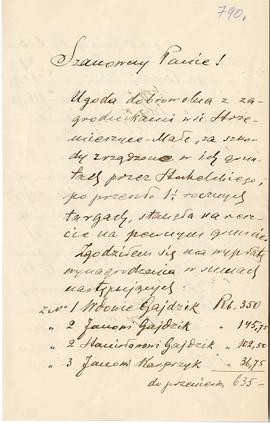 790.
Szanowny Panie!
Ugoda dobrowolna z za-
grodnikami wsi Strze-
mieszyce-Małe, za szko-
dy zrządzone w ich grun-
tach przez
po przeszło 1½ rocznych
targach, stanęła na resz-
cie na pewnym gruncie.
Zgodziłem się na wypłatę
wynagrodzenia w sumach
następujących:
z № 1 Wdowie Gajdzik Rb. 350
" 2 Janowi Gajdzik " 145,75
" 2 Stanisławowi Gajdzik " 102,50
" 3 Janowi Kasprzyk " 36,75
do przeniesien. 635-